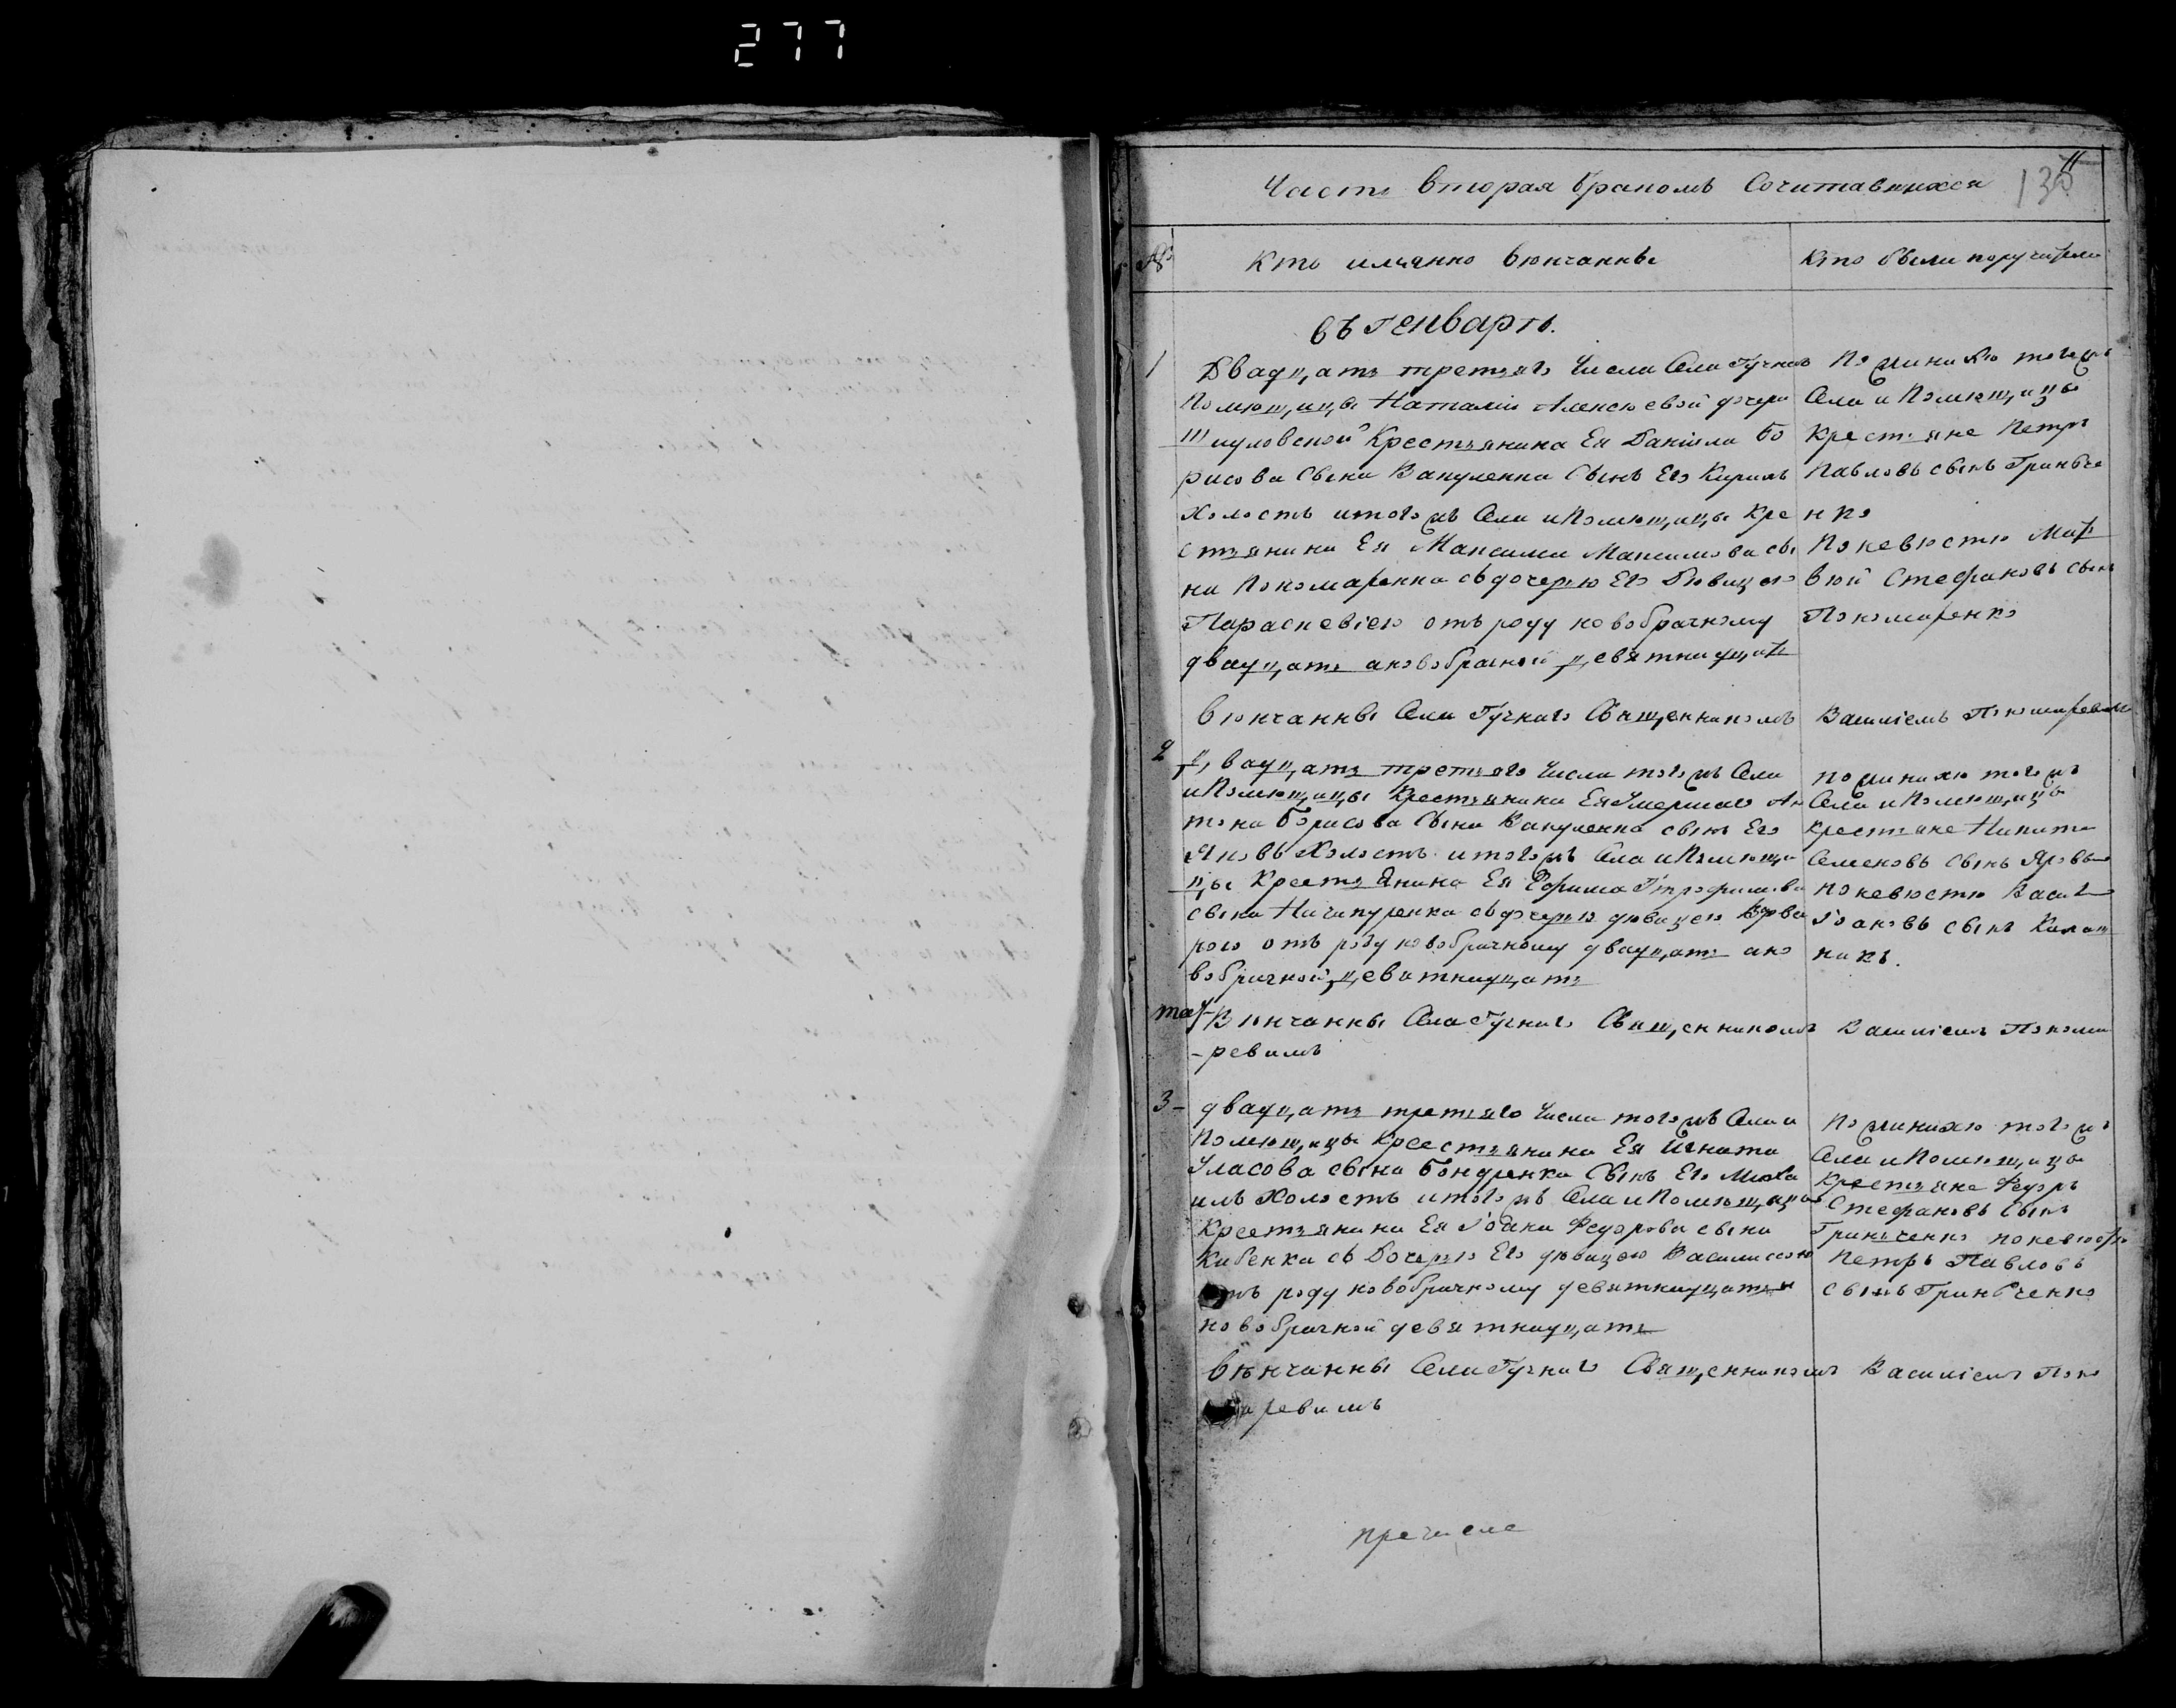 277
Часть вторая бракомъ сочитавшихся 135
№ Кто имянно вѣнчанны Кто были поручители
въ генварѣ.
1 Двадцать третяго числа села Гучнаго
помѣщицы Наталіи Алексѣевой дочери
Крестьянина Ея Даніила Бо
рисова сына Вакуленка сынъ Его Кирилъ
холостъ итогожъ села и помѣщицы Кре
стьянина Ея Максима Максимова сы
на Пономаренка съ дочерью Его дѣвицею
Параскевіею отъ роду новобрачному
двадцать ановобрачной девятнадцать
По женихѣ тогожъ
села и помѣщицы
Крестьяне Петръ
Павловъ сынъ Гриньче
нко
По невѣстѣ Мат
вѣй Стефановъ сынъ
Пономаренко
вѣнчанны села Гучнаго священникомъ Василіемъ Пономаревымъ
2 двадцать третяго числа тогожъ села
и помѣщицы Крестьянина Ея Умершаго Ан
тона Борисова сына Вакуленка сынъ Его
Яковъ холостъ итогожъ села и помѣщи
цы Крестьянина Ея Ефима Трофимова
сына Ничипуренка съ дочерью дѣвицею
рою отъ роду новобрачному двадцать ано
вобрачной девятнадцать
по женихѣ тогожъ
села и помѣщицы
крестьяне Никита
Семеновъ сынъ
по невѣстѣ Василь
Іоановъ сынъ Калаш
никъ.
Вѣнчанны села Гучнаго священникомъ Василіемъ Понома
-ревымъ
3- двадцать третяго числа тогожъ села и
помѣщицы Крестьянина Ея Игната
Уласова сына Бондренка сынъ Его Миха
илъ холостъ итогожъ села и помѣщицы
Крестьянина Ея Іоана Федорова сына
съ дочерью Его дѣвицею Василисою
отъ роду новобрачному девятнадцать а
новобрачной девятнадцать
По женихѣ тогожъ
села и помѣщицы
Крестьяне Федоръ
Стефановъ сынъ
Гриньченко по невѣстѣ
Петръ Павловъ
сынъ Гриньченко
вѣнчанны села Гучнаго священникомъ Василіемъ Поно
маревымъ